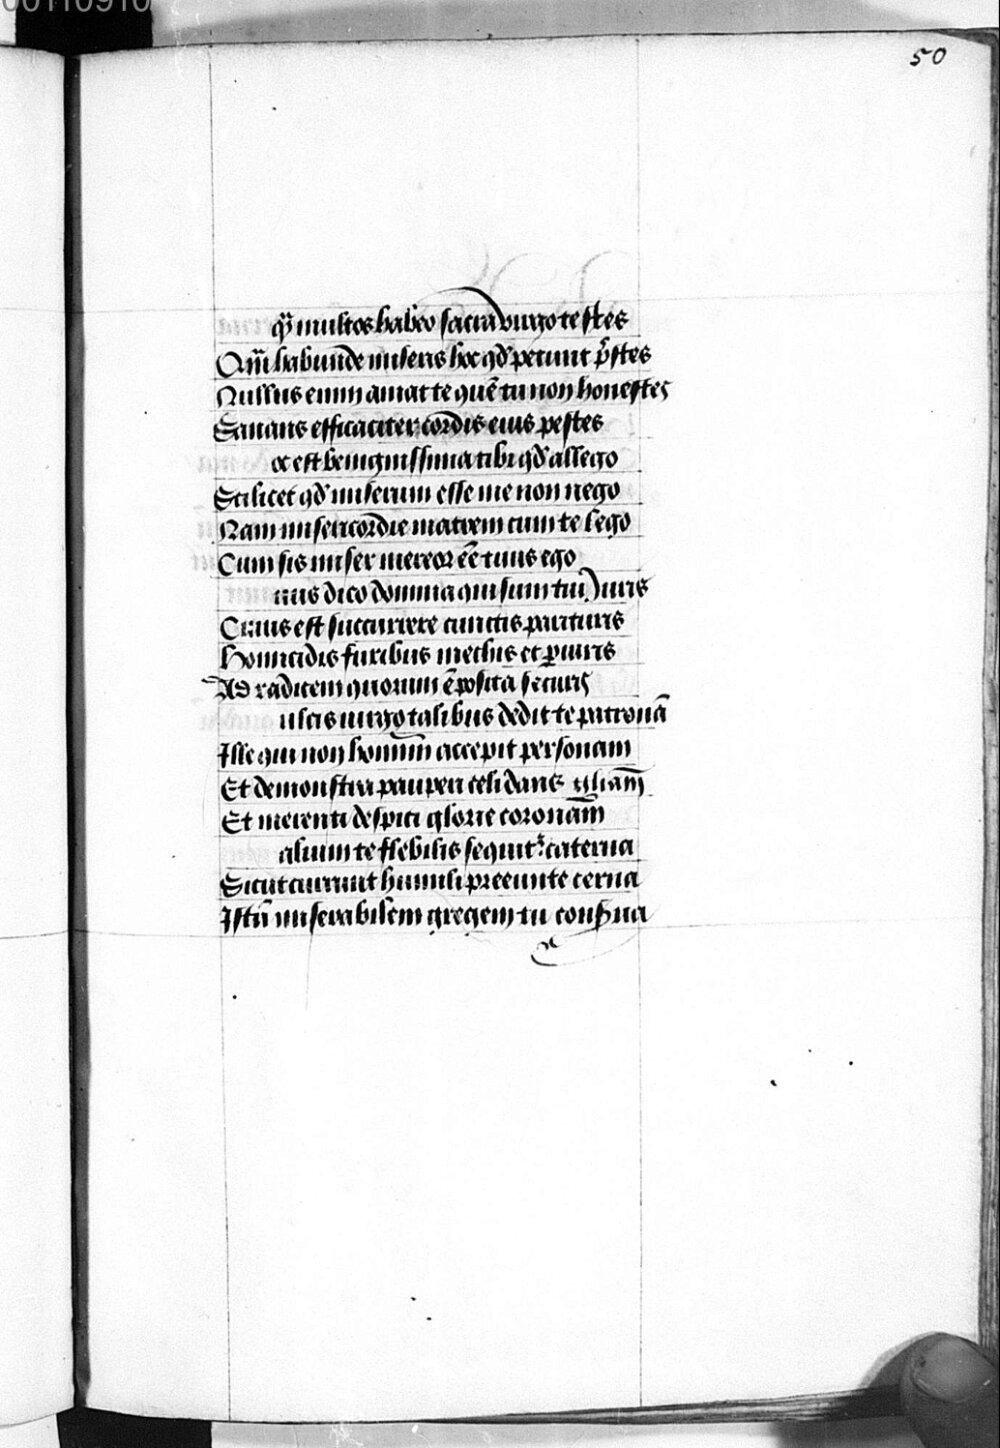 00110910
50
qͥ multos habeo sacra virgo testes
Qm̄ habunde miseris hoc qd' petunt p̄stes
Nullus enim amat te quē tu non honestes
Sanans efficaciter cordis eius pestes
oc est benignissima tibi qd' allego
Scilicet qd' miserum esse me non nego
Nam misericordie matrem cum te lego
Cum sis miser mereor eē tuus ego
uus dico domina qui sum tui iuris
Cuius est succurrere cunctis parituris
Homicidis furibus mechis et periuris
Ad radicem quorum ē posita securis
ulcis virgo talibus dedit te patronā
Ille qui non hominū accepit personam
Et demonstra pauperi celi dans gl̄iam
Et merenti despici glorie coronam
aluum te flebilis sequitr caterua
Sicut currunt hinnuli preeunte cerua
Istū miserabilem gregem tu conserua